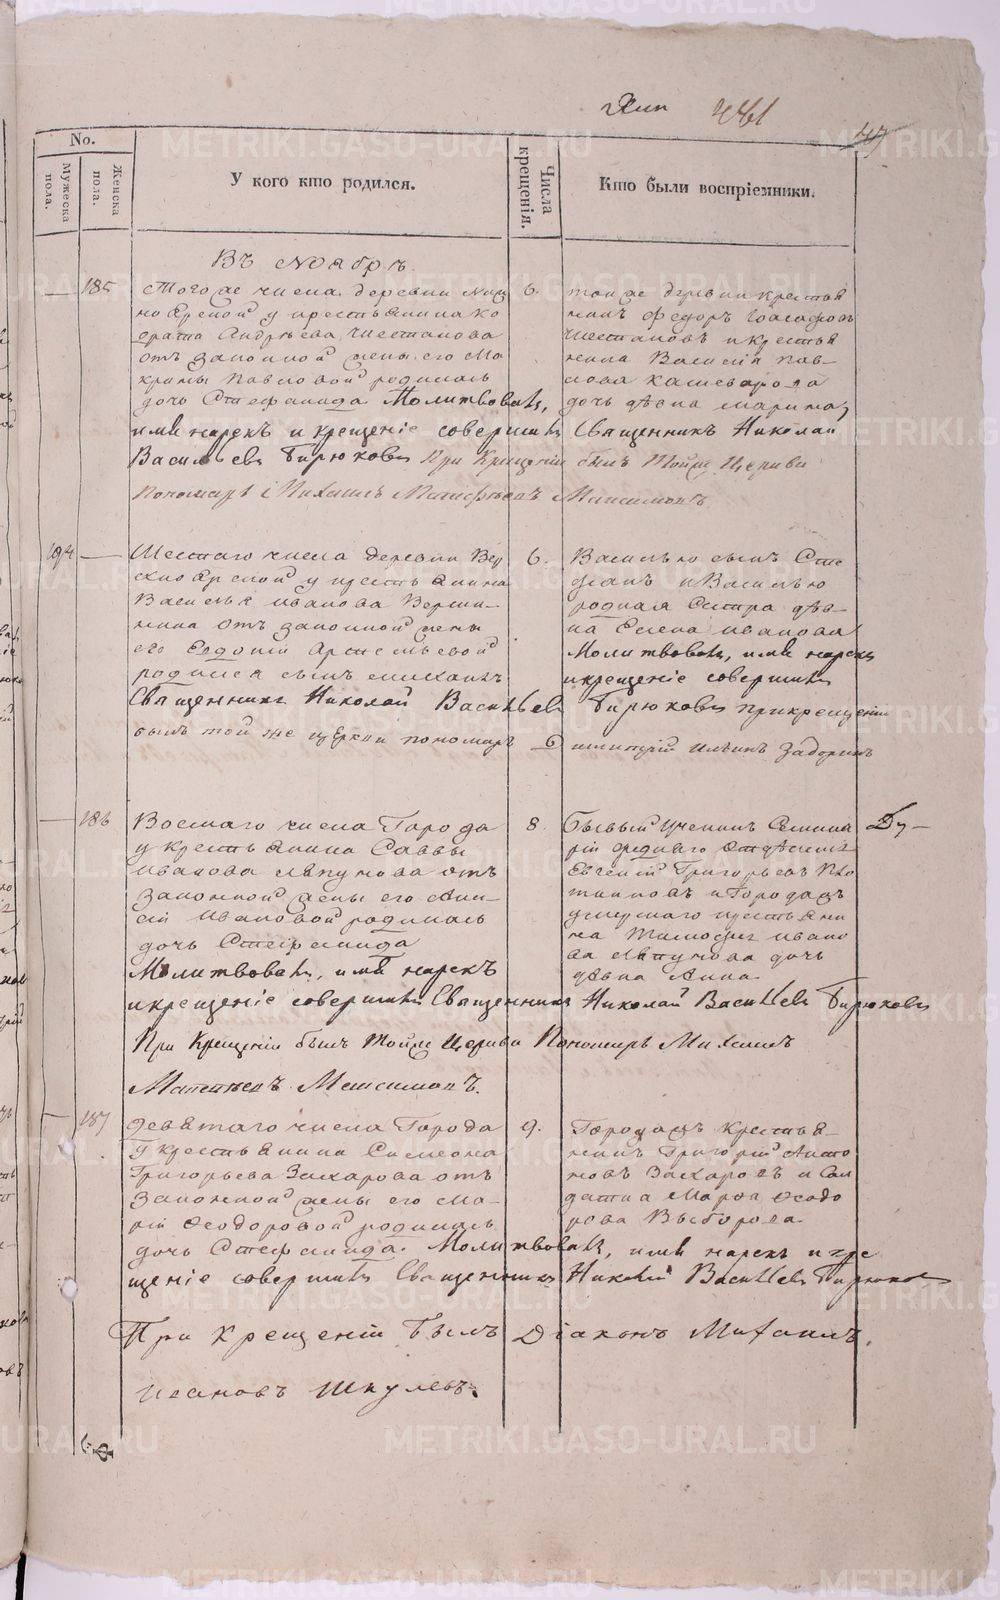 441
47
No.
Мужеска пола.
Женска пола.
У кого кто родился.
Числа крещенія.
Кто были воспріемники.
Въ Ноябрѣ
185
Того же числа деревни
у крестьянина Ко
драта Андрѣева Чистанова
отъ законной жены его Ма
крины Павловой родилась
дочь Стефанида Молитвовалъ,
имя нарекъ и крещеніе совершилъ Священникъ Николай
Васильевъ Бирюковъ При Крещеніи былъ Тойже Церкви
Пономарь Михаилъ Матфѣевъ Максимовъ
6.
тойже деревни крестья
нинъ Федоръ
Чистановъ и крестья
нина Василія Пав-
лова Кашеварова
дочь дѣвка Марина
194
Шестаго числа деревни Вер
у крестьянина
Василья Иванова Верши-
нина отъ законной жены
его Евдокіи Арсентьевой
родился сынъ Михаилъ
Священникъ Николай Васильевъ Бирюковъ при крещеніи
былъ той же церкви пономарь Димитрій Ильинъ Задоринъ
6.
Василью сынъ Сте
фанъ и Василью
родная Сестра дѣв-
ка Елена Иванова
Молитвовалъ, имя нарекъ
и крещеніе совершилъ
186
Восмаго числа Города
у крестьянина Саввы
Иванова Ляпунова отъ
законной жены его Ани-
сіи Ивановой родилась
дочь Стефанида
Молитвовалъ, имя нарекъ
и крещеніе совершилъ Священникъ Николай Васильевъ Бирюковъ
При Крещеніи былъ Тойже Церкви Пономарь Михаилъ
Матфѣевъ Максимовъ.
8.
Бывый Ученикъ Семина
ріи средняго Отдѣленія
Евгеній Григорьевъ Пло
тниковъ и Городац
крестьяни
на Тимофея Ивано
ва Ляпунова дочь
дѣвка Анна
187
Девятаго числа Города
У крестьянина Симеона
Григорьева Захарова отъ
Законной жены его Ма-
ріи Феодоровой родилась
дочь Стефанида. Молитвовалъ, имя нарекъ и кре
щеніе совершилъ Священникъ Николай Васильевъ Бирюковъ
При Крещеніи былъ Діаконъ Михаилъ
Ивановъ Шкулевъ.
9.
Крестья-
нинъ Григорій Анто
новъ Захаровъ и Сол
датка Марфа Феодо
рова Выборова
METRIKI.GASO-URAL.RU